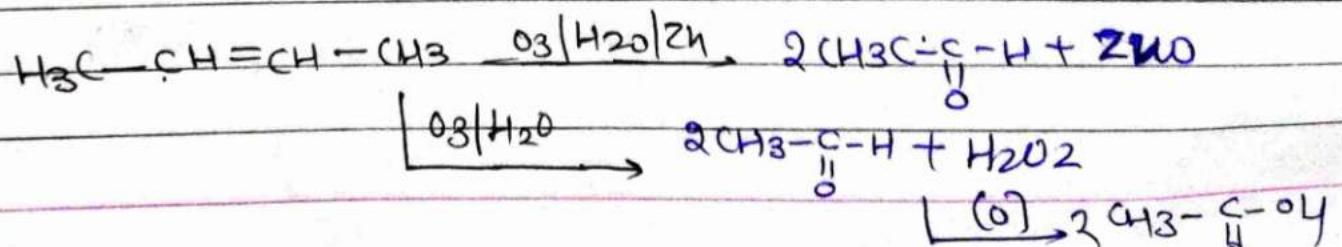 H3C-CH=CH-CH3 O3/H2O/Zn → 2CH3C-C-H + ZnO
||
O
O3/H2O → 2CH3-C-H + H2O2
||
O
(O) → 2 CH3-C-OH
||